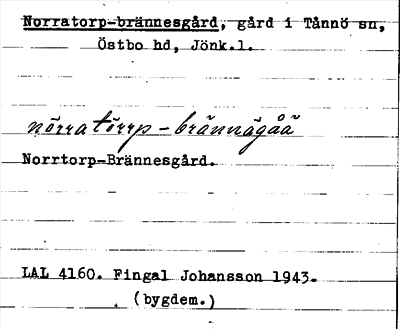 Norratorp-brännesgård, gård i Tånnö sn,
Östbo hd, Jönk.l.
nörratörrp-brännägåä
Norrtorp-Brännesgård.
LAL 4160. Fingal Johansson 1943.
(bygdem.)